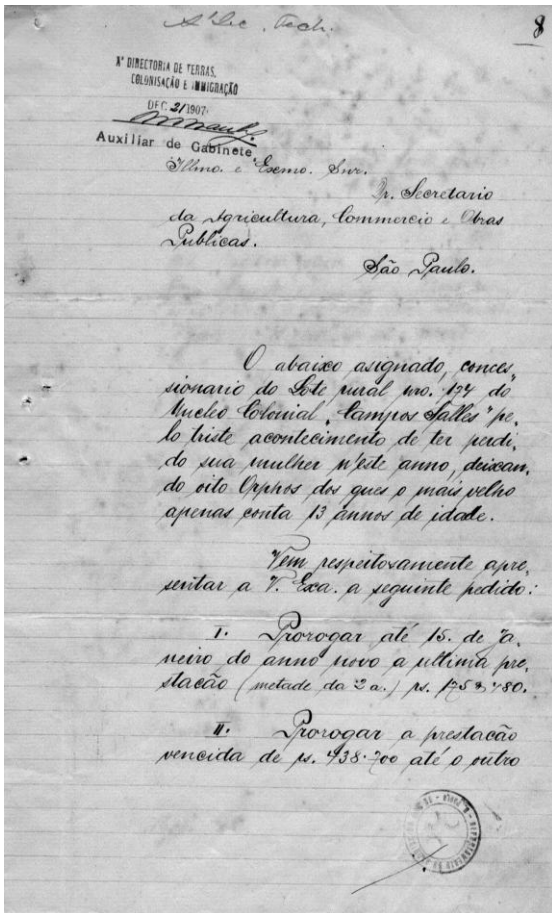 8
DIRECTORIA DE TERRAS,
COLONISAÇÃO E IMMIGRAÇÃO
DEC. 21 1907
Auxiliar de Gabinete
Illmo. e Exmo. Snr.
Dr. Secretario
da Agricultura, Commercio e Obras
Publicas.
São Paulo.
O abaixo asignado, conces„
sionario do Lote rural nro. 174 do
Nucleo Colonial „Campos Salles" pe„
lo triste acontecimento de ter perdi„
do sua mulher n'este anno, deixan„
do oito Orphos dos ques o mais velho
apenas conta 13 annos de idade.
Vem respeitosamente apre„
sentar a V. Exa. a seguinte pedido:
I. Prorogar até 15. de Ja„
neiro do anno novo a ultima pre„
stacão (metade da 2 a.)
II. Prorogar a prestacão
vencida de rs. 438.700 até o outro